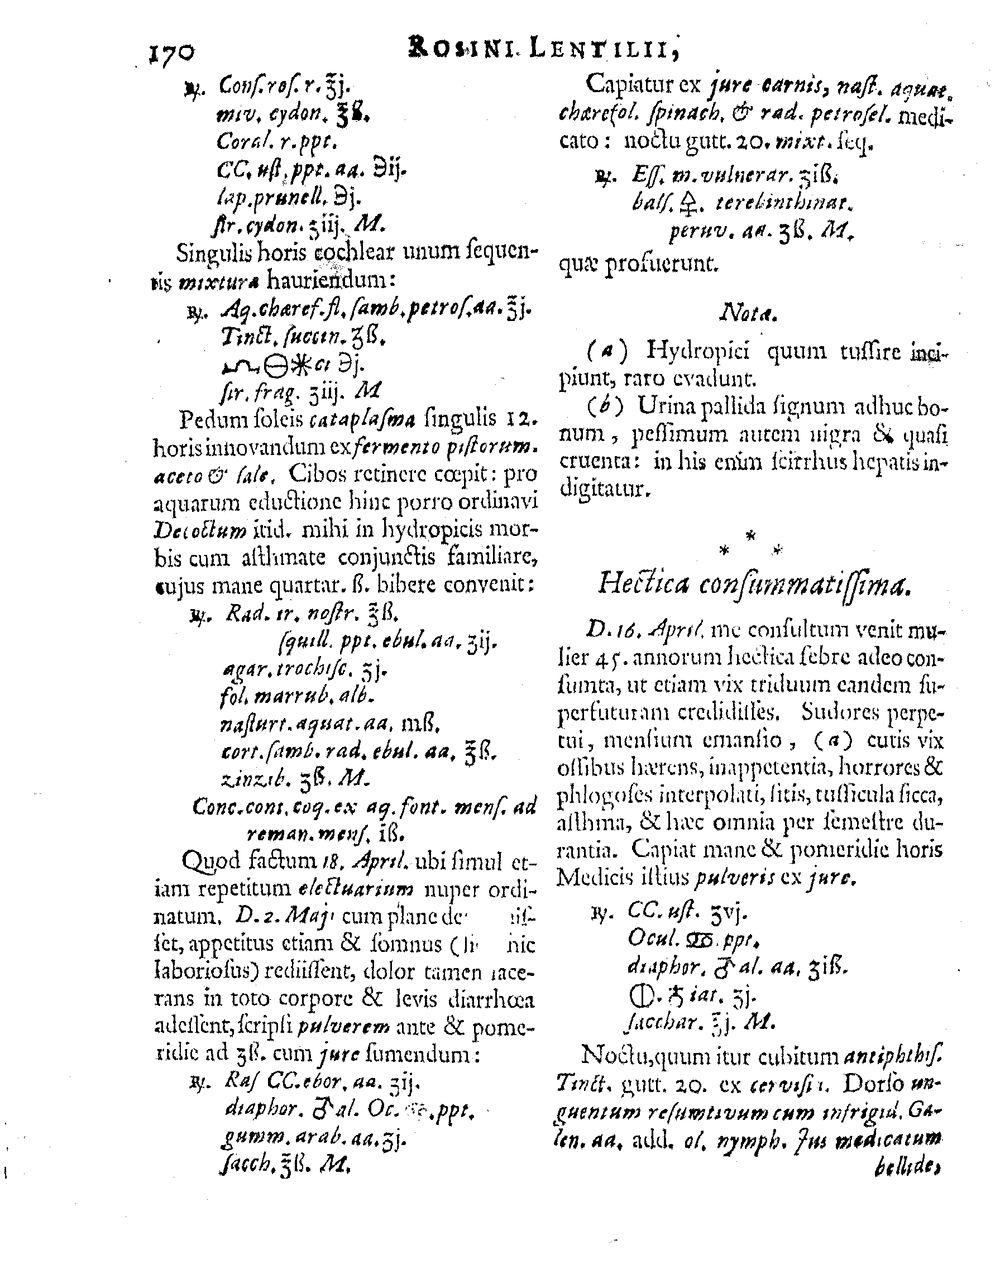 170
ROSINI LENTILII,
℞. Conſ. roſ. r. ℥j.
miv. cydon. ℥ß.
Coral. r. ppt.
CC. uſt. ppt. aa. ℈ij.
lap. prunell. ℈j.
ſtr. cydon. ʒiij. M.
Singulis horis cochlear unum ſequen-
tis mixtura hauriendum:
℞. Aq. chæref. fl. ſamb. petroſ. aa. ℥j.
Tinct. ſuccin. ʒß.
ci ℈j.
ſir. frag. ʒiij. M
Pedum ſoleis cataplaſma ſingulis 12.
horis innovandum ex fermento piſtorum.
aceto & ſale. Cibos retinere cœpit: pro
aquarum eductione hinc porro ordinavi
Decoctum itid. mihi in hydropicis mor-
bis cum aſthmate conjunctis familiare,
cujus mane quartar. ß. bibere convenit:
℞. Rad. ir. noſtr. ℥ß.
ſquill. ppt. ebul. aa. ʒij.
agar. trochiſc. ʒj.
fol. marrub. alb.
naſturt. aquat. aa. mß.
cort. ſamb. rad. ebul. aa. ℥ß.
zinzib. ʒß. M.
Conc. cont. coq. ex aq. font. menſ. ad
reman. menſ. iß.
Quod factum 18. April. ubi ſimul et-
iam repetitum electuarium nuper ordi-
natum. D. 2. Maj. cum plane
ſet, appetitus etiam & ſomnus
laborioſus) rediiſſent, dolor tamen lace-
rans in toto corpore & levis diarrhœa
adeſſent, ſcripſi pulverem ante & pome-
ridie ad ʒß. cum jure ſumendum:
℞. Raſ CC. ebor. aa. ʒij.
diaphor. ♂al. Oc. ppt.
gumm. arab. aa. ʒj.
ſacch. ℥ß. M.
Capiatur ex jure carnis, naſt. aquat.
chærefol. ſpinach. & rad. petroſel. medi-
cato: noctu gutt. 20. mixt. ſeq.
℞. Eſſ. m. vulnerar. ʒiß.
balſ. 🜍. terebinthinat.
peruv. aa. ʒß. M.
quæ profuerunt.
Notæ.
(a) Hydropici quum tuſſire inci-
piunt, raro evadunt.
(b) Urina pallida ſignum adhuc bo-
num, peſſimum autem nigra & quaſi
cruenta: in his enim ſcirrhus hepatis in-
digitatur.
* * *
Hectica conſummatiſſima.
D. 16. April. me conſultum venit mu-
lier 45. annorum hectica febre adeo con-
ſumta, ut etiam vix triduum eandem ſu-
perfuturam credidiſſes. Sudores perpe-
tui, menſium emanſio, (a) cutis vix
oſſibus hærens, inappetentia, horrores &
phlogoſes interpolati, ſitis, tuſſicula ſicca,
aſthma, & hæc omnia per ſemeſtre du-
rantia. Capiat mane & pomeridie horis
Medicis iſtius pulveris ex jure.
℞. CC. uſt. ʒvj.
Ocul. ♋. ppt.
diaphor. ♂al. aa. ʒiß.
iat. ʒj.
ſacchar. ℥j. M.
Noctu, quum itur cubitum antiphthiſ.
Tinct. gutt. 20. ex cerviſi . Dorſo un-
guentum reſumtivum cum infrigid. Ga-
len. aa. add. ol. nymph. Jus medicatum
bellide,